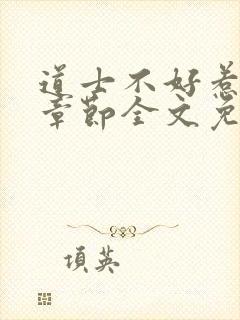 道士不好惹
章節全文免
項英